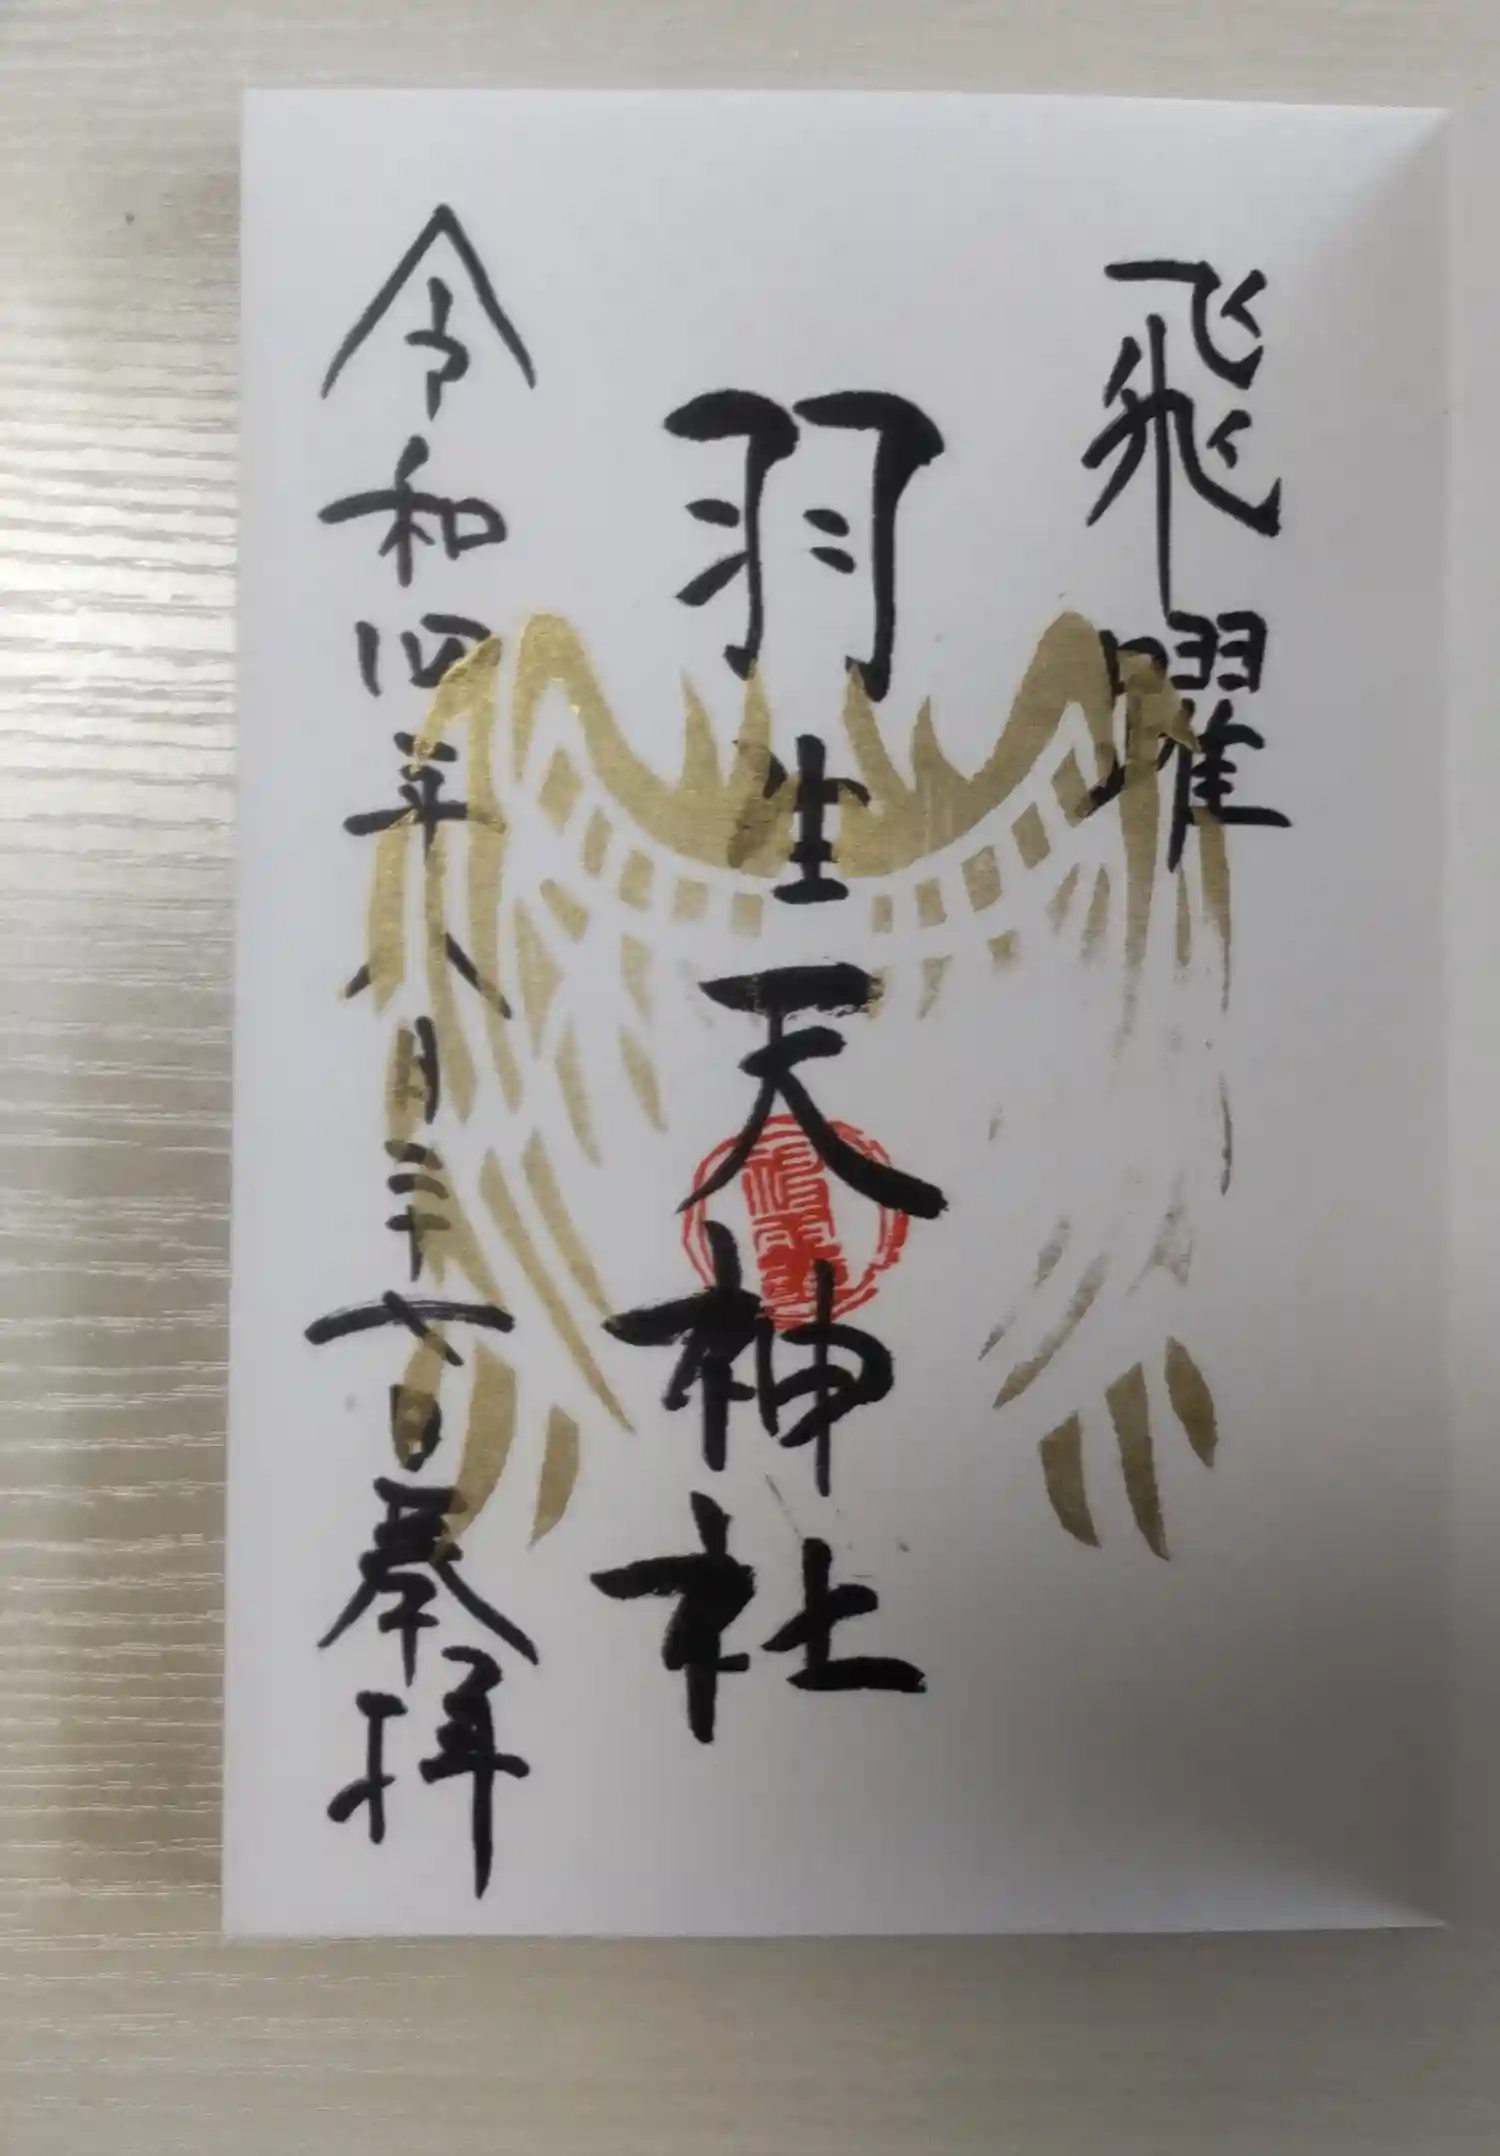 飛曜
羽生天神社
令和四年八月二十七日奉拝